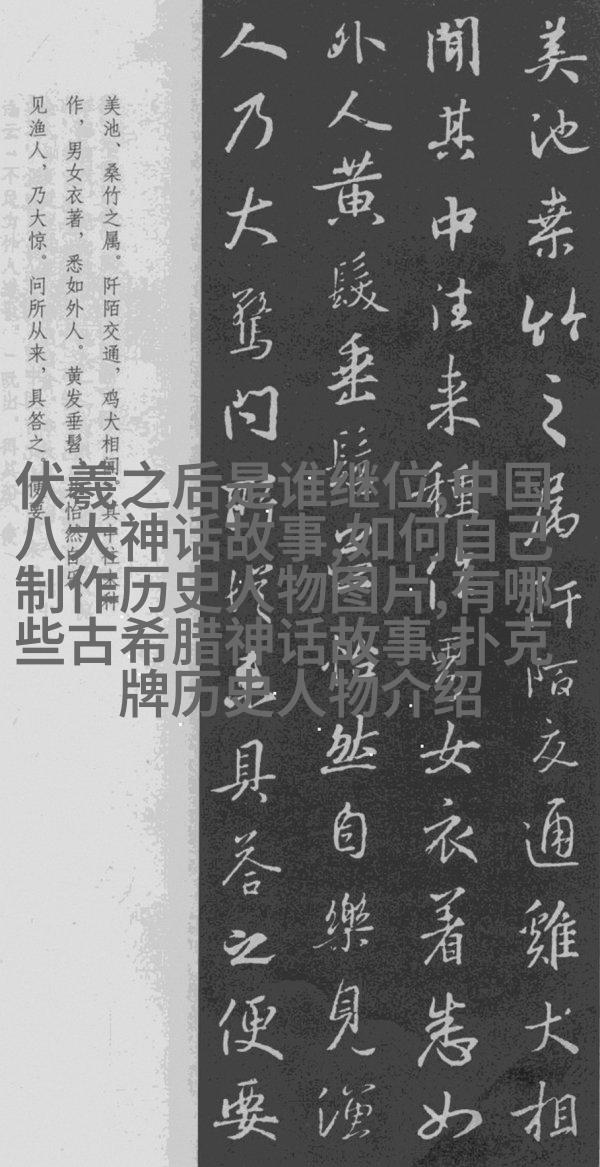 美池桒竹之属阡陌交通雞犬相
聞其中往来種作男女衣着悉如
外人黄髮垂髫並怡然自樂見漁
人乃大驚問所從来具答之便要
美池、桑竹之属。阡陌交通，鸡犬相闻。其中往来种
作，男女衣著，悉如外人。黄发垂髫，并怡然自乐。
见渔人，乃大惊。问所从来，具答之。便要
伏羲之后是谁继位,中国
八大神话故事,如何自己
制作历史人物图片,有哪
些古希腊神话故事,扑克
牌历史人物介绍